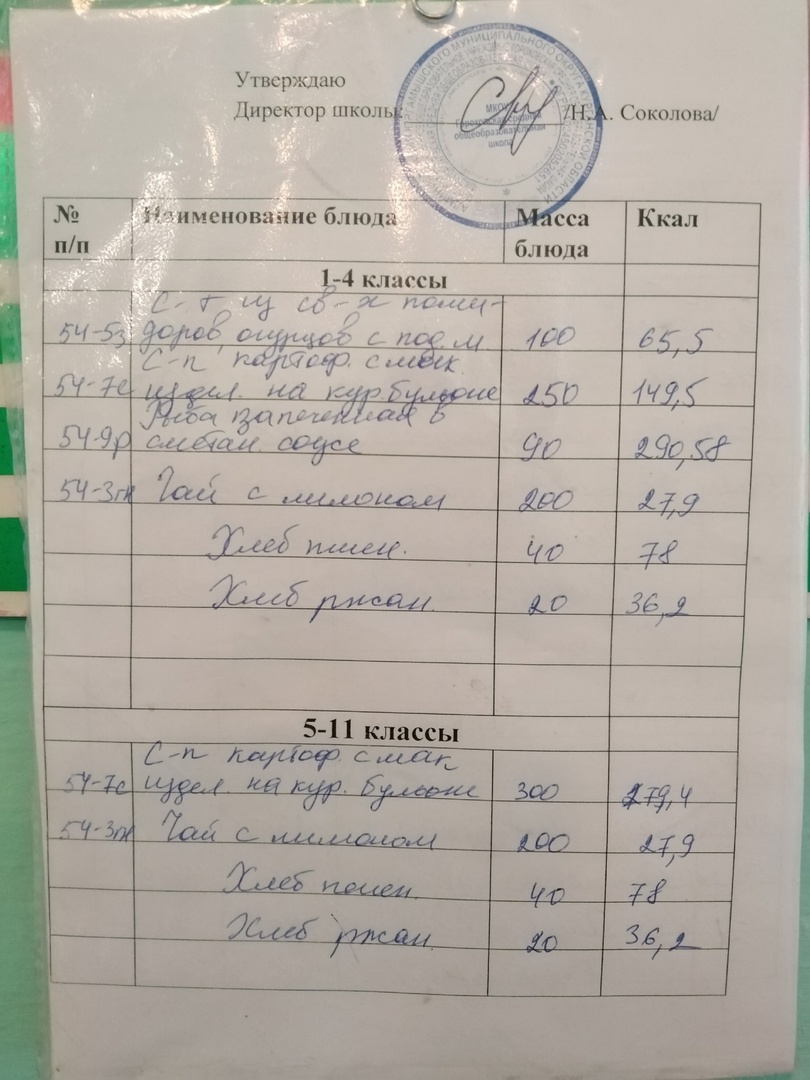 Утверждаю
Директор школы: /Н.А. Соколова/
МКОУ
общеобразовательная
школа
№ п/п Наименование блюда Масса блюда Ккал
1-4 классы
С-т из св-х поми-
54-5з доров, огурцов с под.м 100 65,5
С-п картоф. с мак
54-7с издел. на кур.бульоне 250 149,5
Рыба запеченная в
54-9р сметан. соусе 90 290,58
54-3гн Чай с лимоном 200 27,9
Хлеб пшен. 40 78
Хлеб ржан. 20 36,2
5-11 классы
С-п картоф. с мак
54-7с издел. на кур. бульоне 300 179,4
54-3гн Чай с лимоном 200 27,9
Хлеб пшен. 40 78
Хлеб ржан. 20 36,2